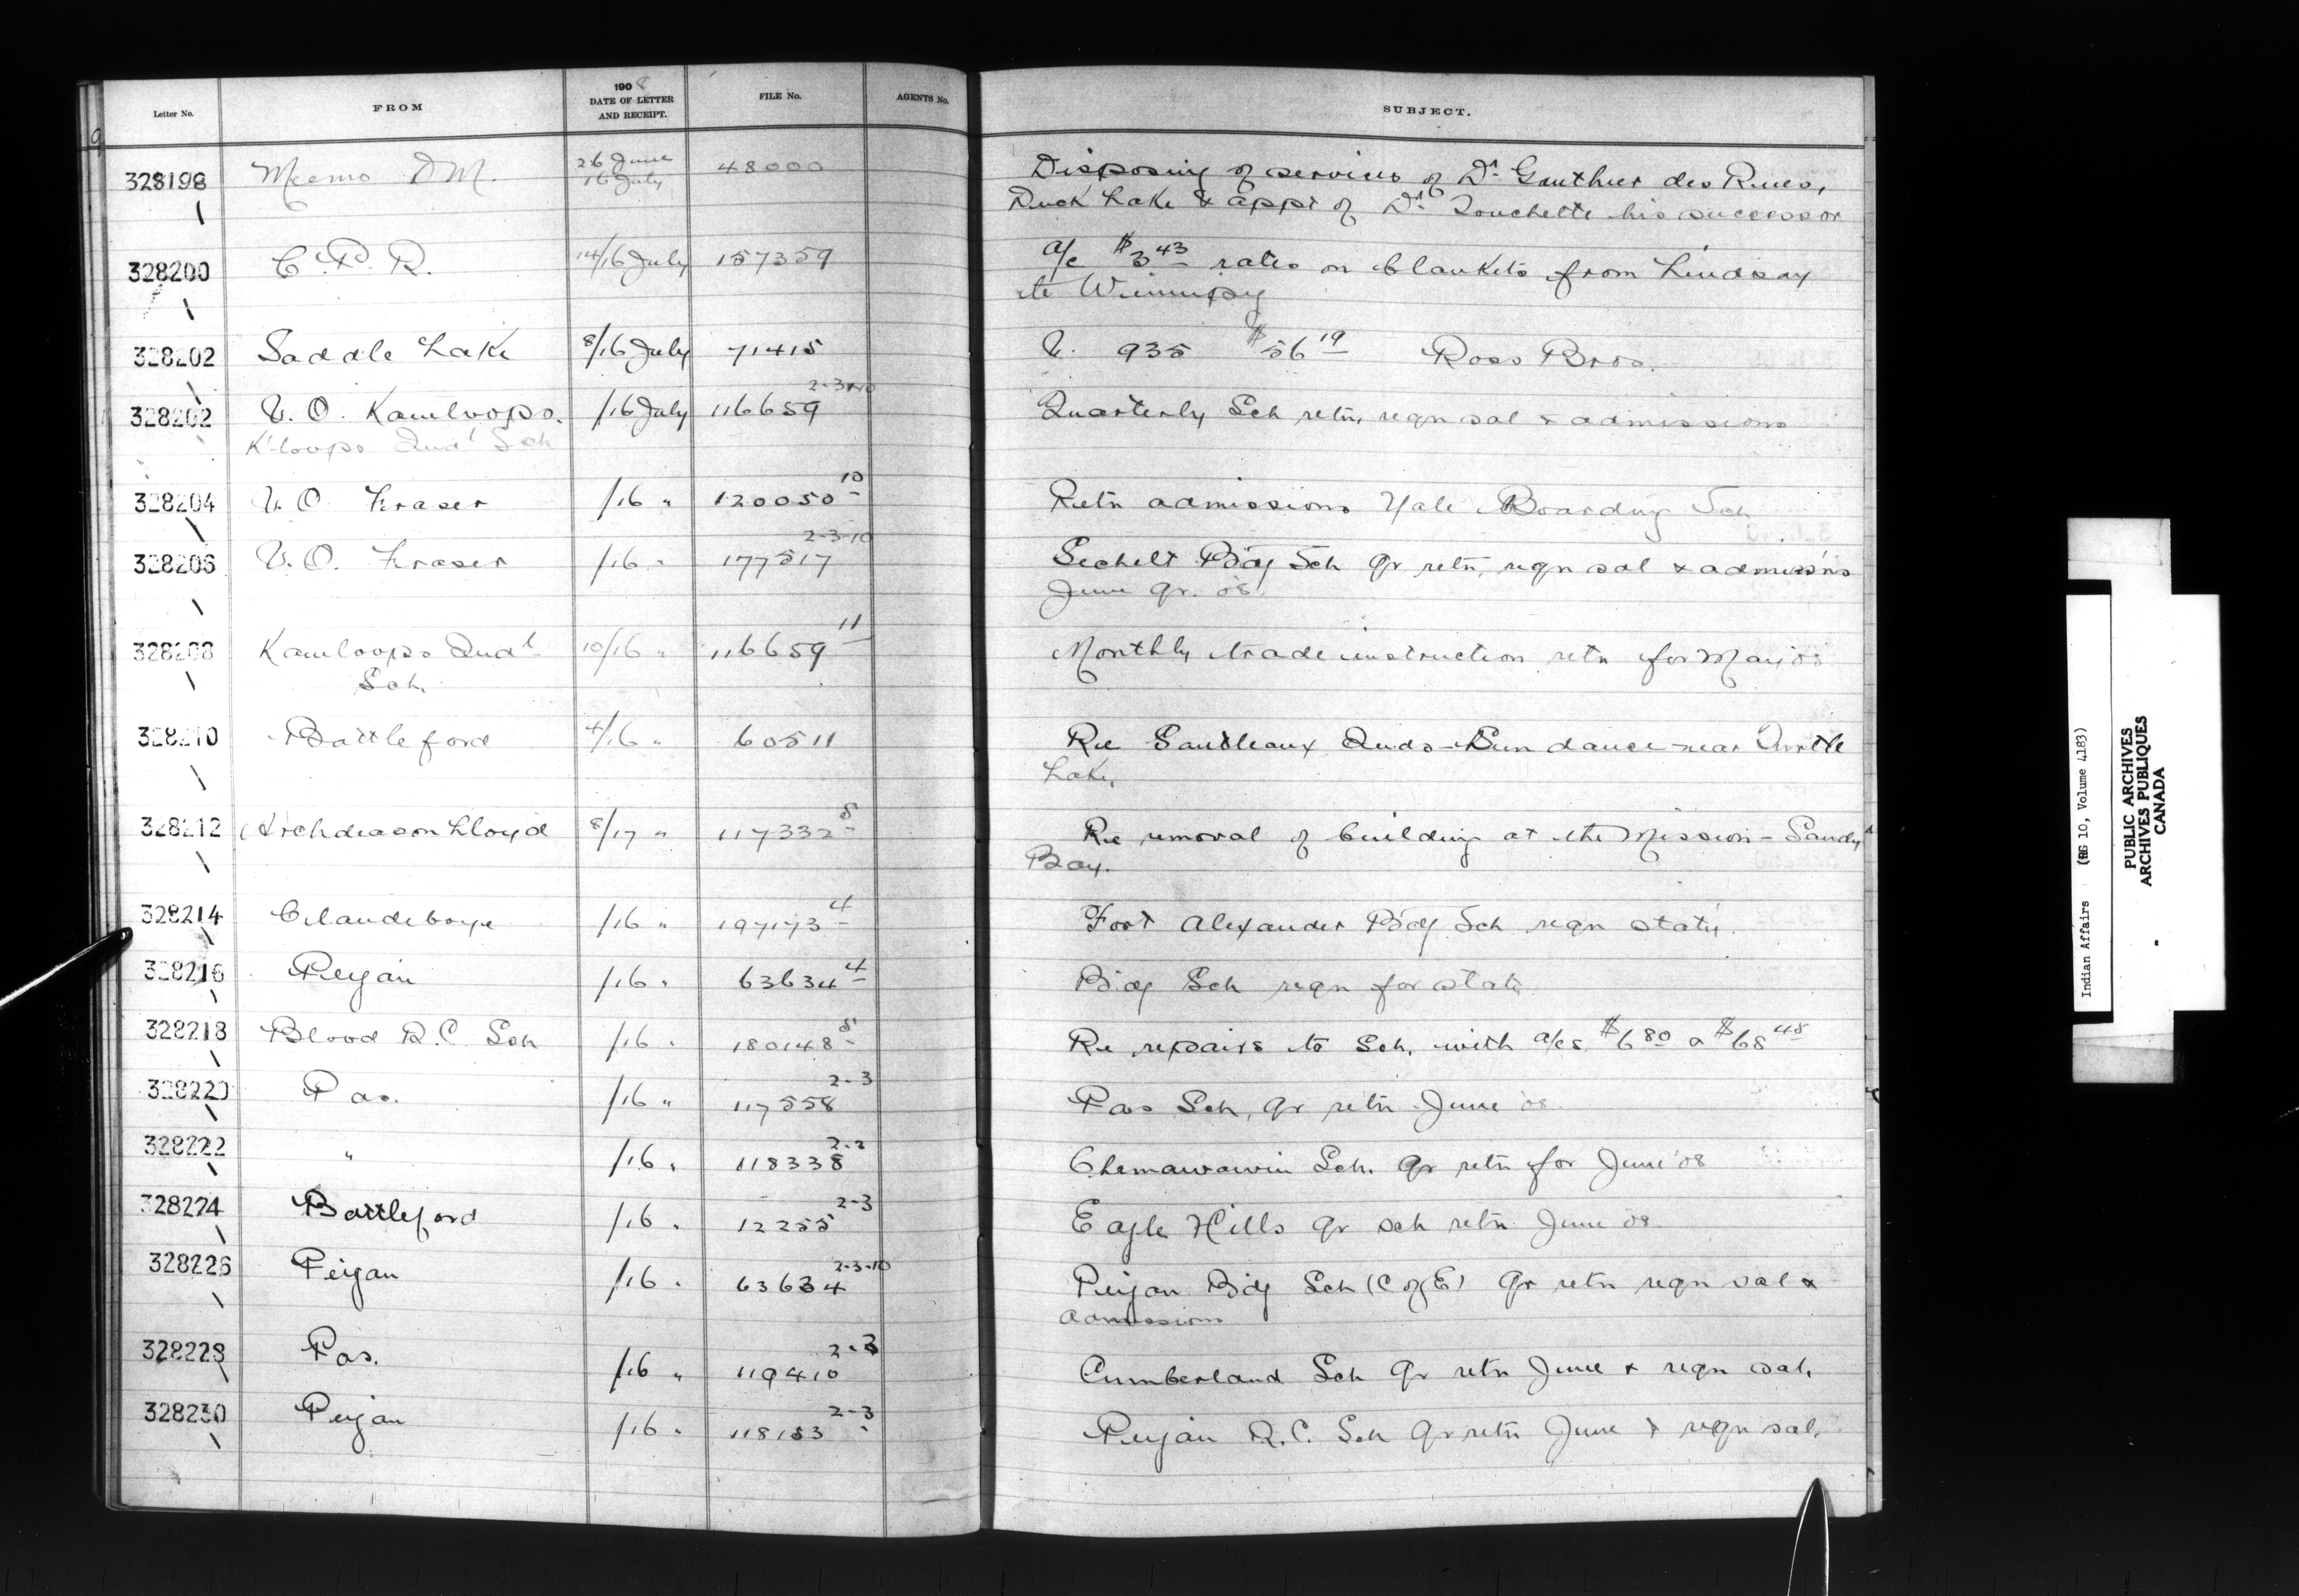 Letter No. FROM 1908 DATE OF LETTER AND RECEIPT. FILE No. AGENTS No. SUBJECT.
9
328198 Memo D M. 26 June 16 July 48000 Disposing of services of Dr. Gauthier des
Duck Lake & appt of Dr. Touchette his successor
328200 C.P.R. 14/16 July 157359 a/c $3 43 rates on blankets from Lindsay
to Winnipeg
328202 Saddle Lake 8/16 July 71415 V. 935 $56 19 Ross Bros.
328202 V. O. Kamloops. /16 July 116659 2-3-10 Quarterly Sch retn, reqn sal & admissions
K'loops Indl Sch
328204 V. O. Fraser /16 " 120050 10 Retn admissions Yale Boarding Sch
328206 V. O. Fraser /16 " 177517 2-3-10 Sechelt B'dg Sch qr retn, reqn sal & admiss'ns
June qr. 08.
328208 Kamloops Indl 10/16 " 116659 11 Monthly trade instruction retn for May 08
Sch.
328210 Battleford 4/16 " 60511 Re Saulteaux Inds - Sun dance near Turtle
Lake.
328212 Archdeacon Lloyd 8/17 " 117332 5 Re removal of building at the Mission - Sandy
Bay.
328214 Clandeboye /16 " 197173 4 Fort Alexander B'dg Sch reqn staty.
328216 Peigan /16 " 63634 4 B'dg Sch reqn for staty
328218 Blood R.C. Sch /16 " 180148 5 Re repairs to Sch. with a/cs $6 80 & $68 48
328220 Pas. /16 " 117558 2-3 Pas Sch, qr retn June 08
328222 " /16 " 118338 2-3 Chemawawin Sch. qr retn for June '08
328224 Battleford /16 " 12255 2-3 Eagle Hills qr sch retn June 08
328226 Peigan /16 " 63634 2-3-10 Peigan B'dg Sch (C of E) qr retn reqn sal &
admissions
328228 Pas. /16 " 119410 2-3 Cumberland Sch qr retn June & reqn sal.
328230 Peigan /16 " 118153 2-3 Peigan R.C. Sch qr retn June & reqn sal.
Indian Affairs (RG 10, Volume 4183)
PUBLIC ARCHIVES
ARCHIVES PUBLIQUES
CANADA